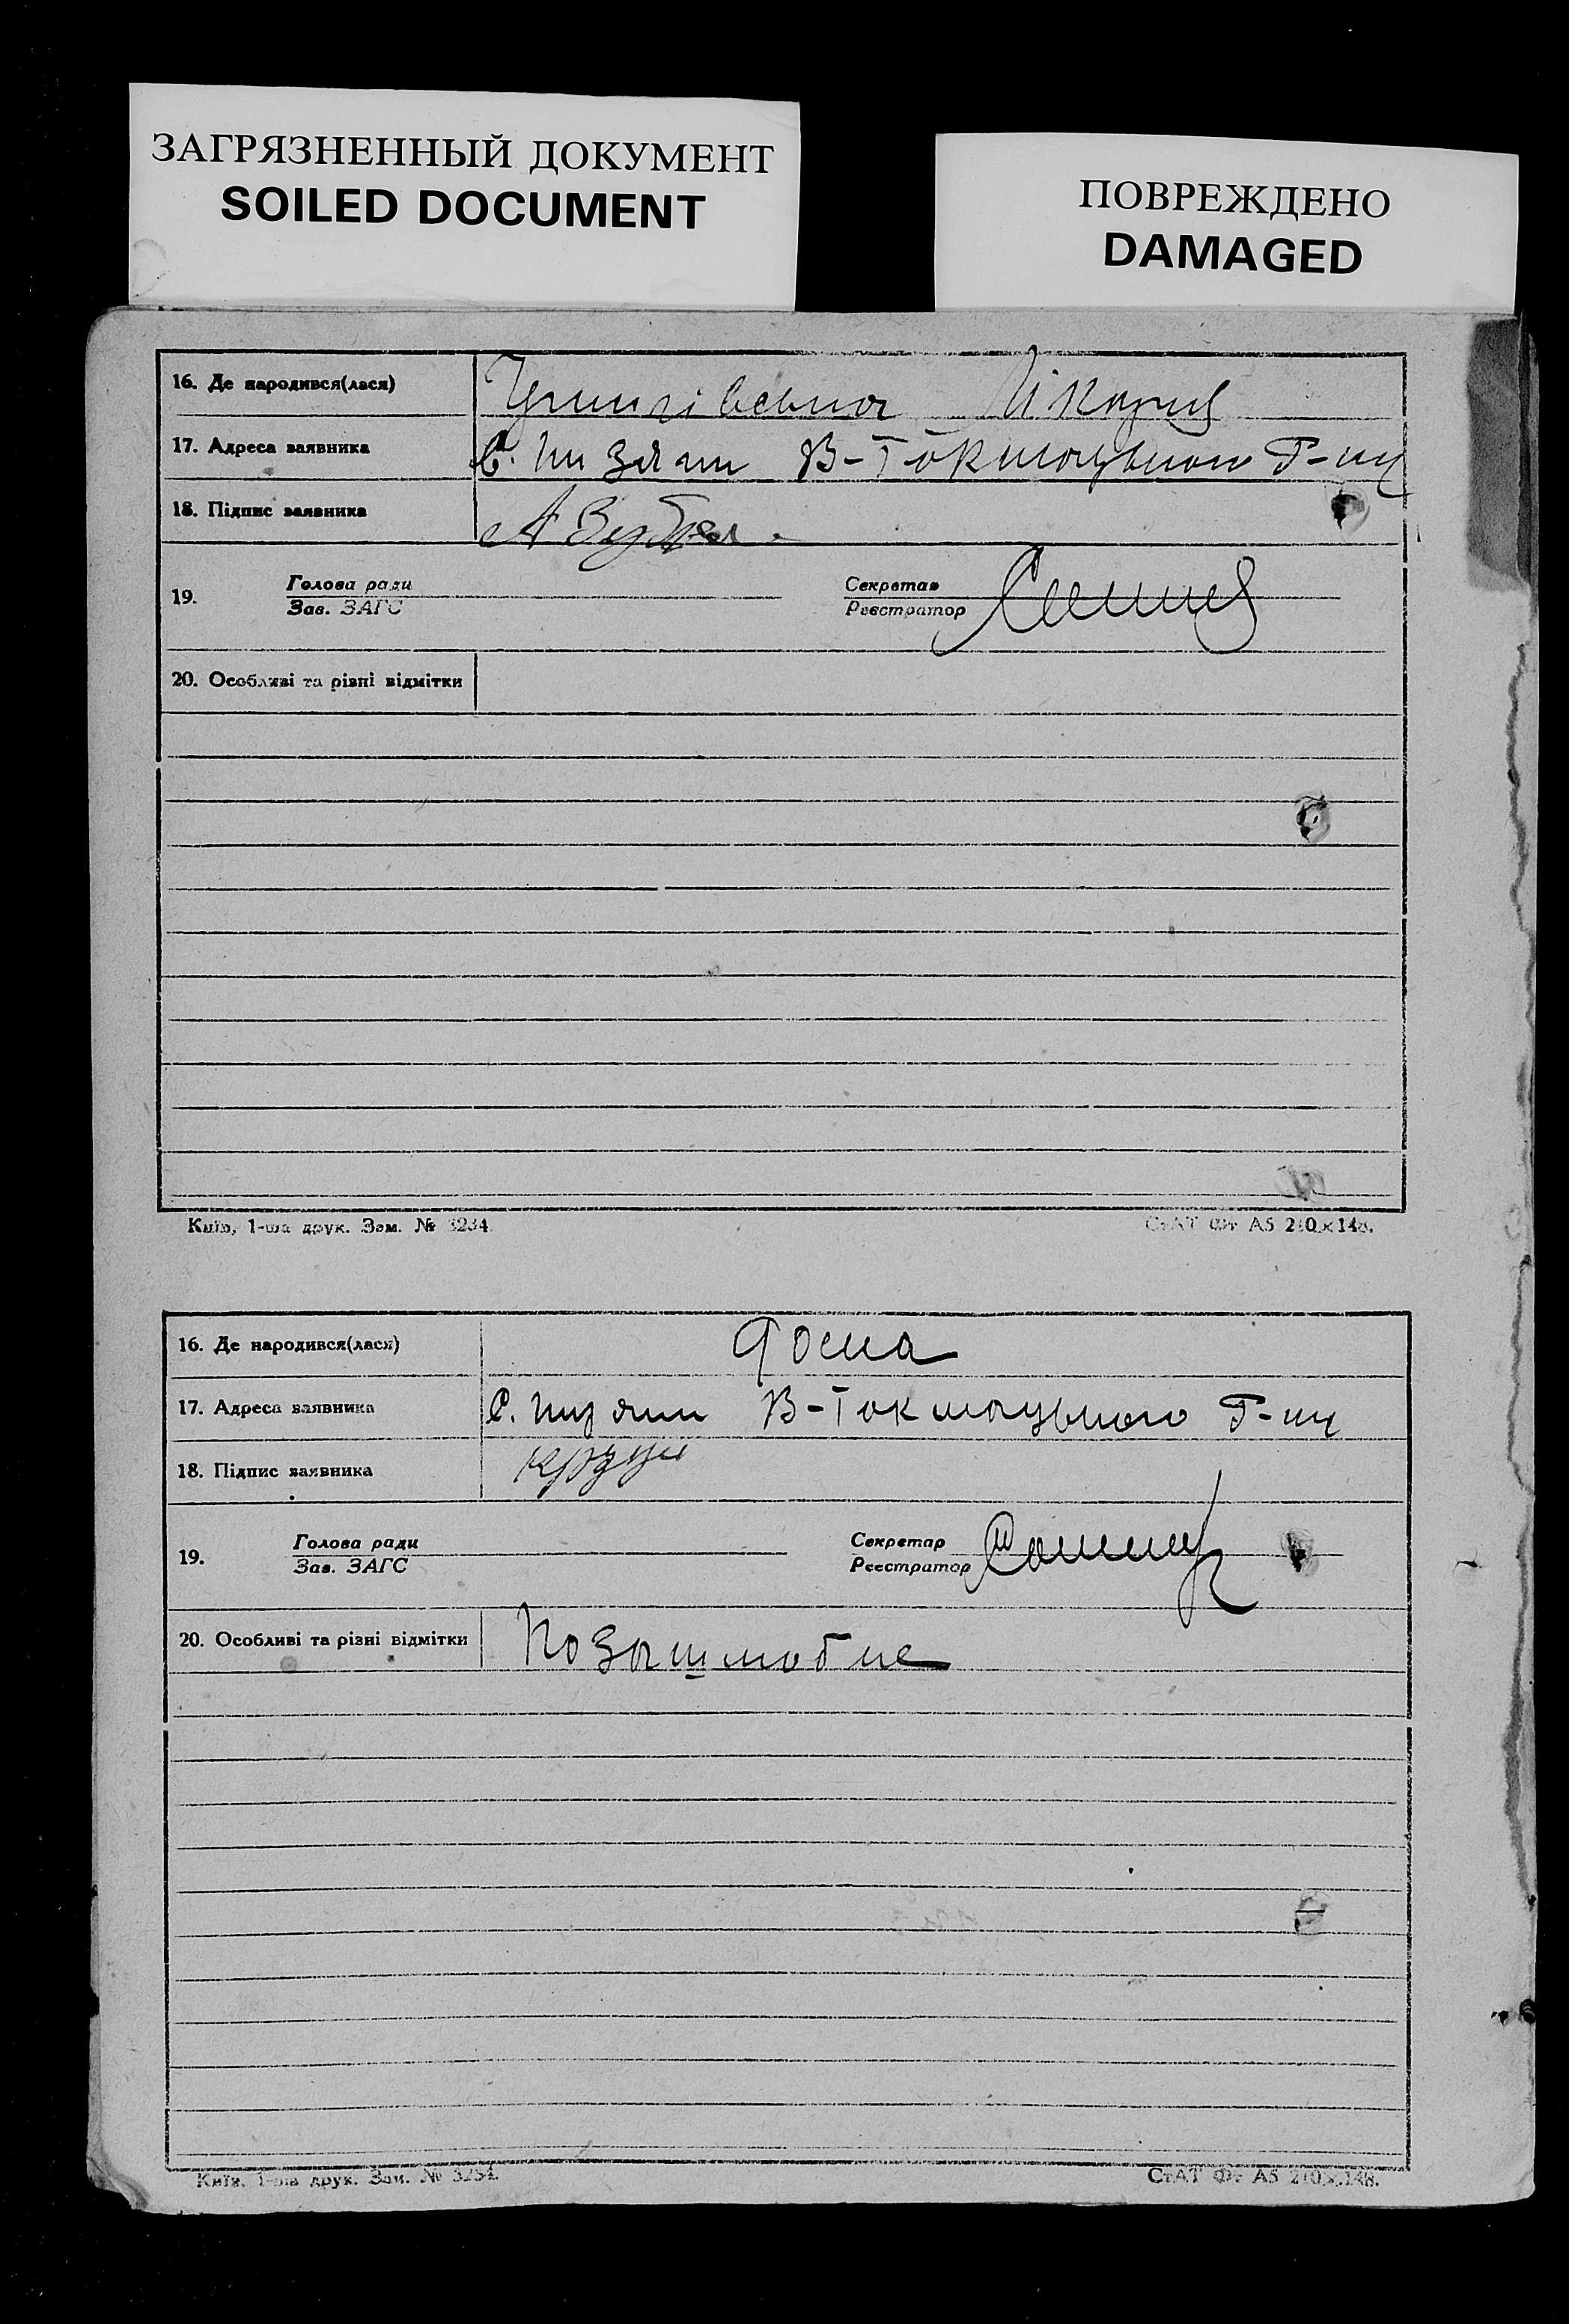 ЗАГРЯЗНЕННЫЙ ДОКУМЕНТ
SOILED DOCUMENT
ПОВРЕЖДЕНО
DAMAGED
16. Де народився(лася)
17. Адреса заявника В-Токмацького Р-ну
18. Підпис заявника
19. Голова ради Секретар
Зав. ЗАГС Реєстратор
20. Особливі та різні відмітки
Київ, 1-ша друк. Зам. № 3234. СтАТ Фт А5 210×148.
16. Де народився(лася) дома
17. Адреса заявника с. В-Токмацького Р-ну
18. Підпис заявника
19. Голова ради Секретар
Зав. ЗАГС Реєстратор
20. Особливі та різні відмітки
Київ, 1-ша друк. Зам. № 3234. СтАТ Фт А5 210×148.